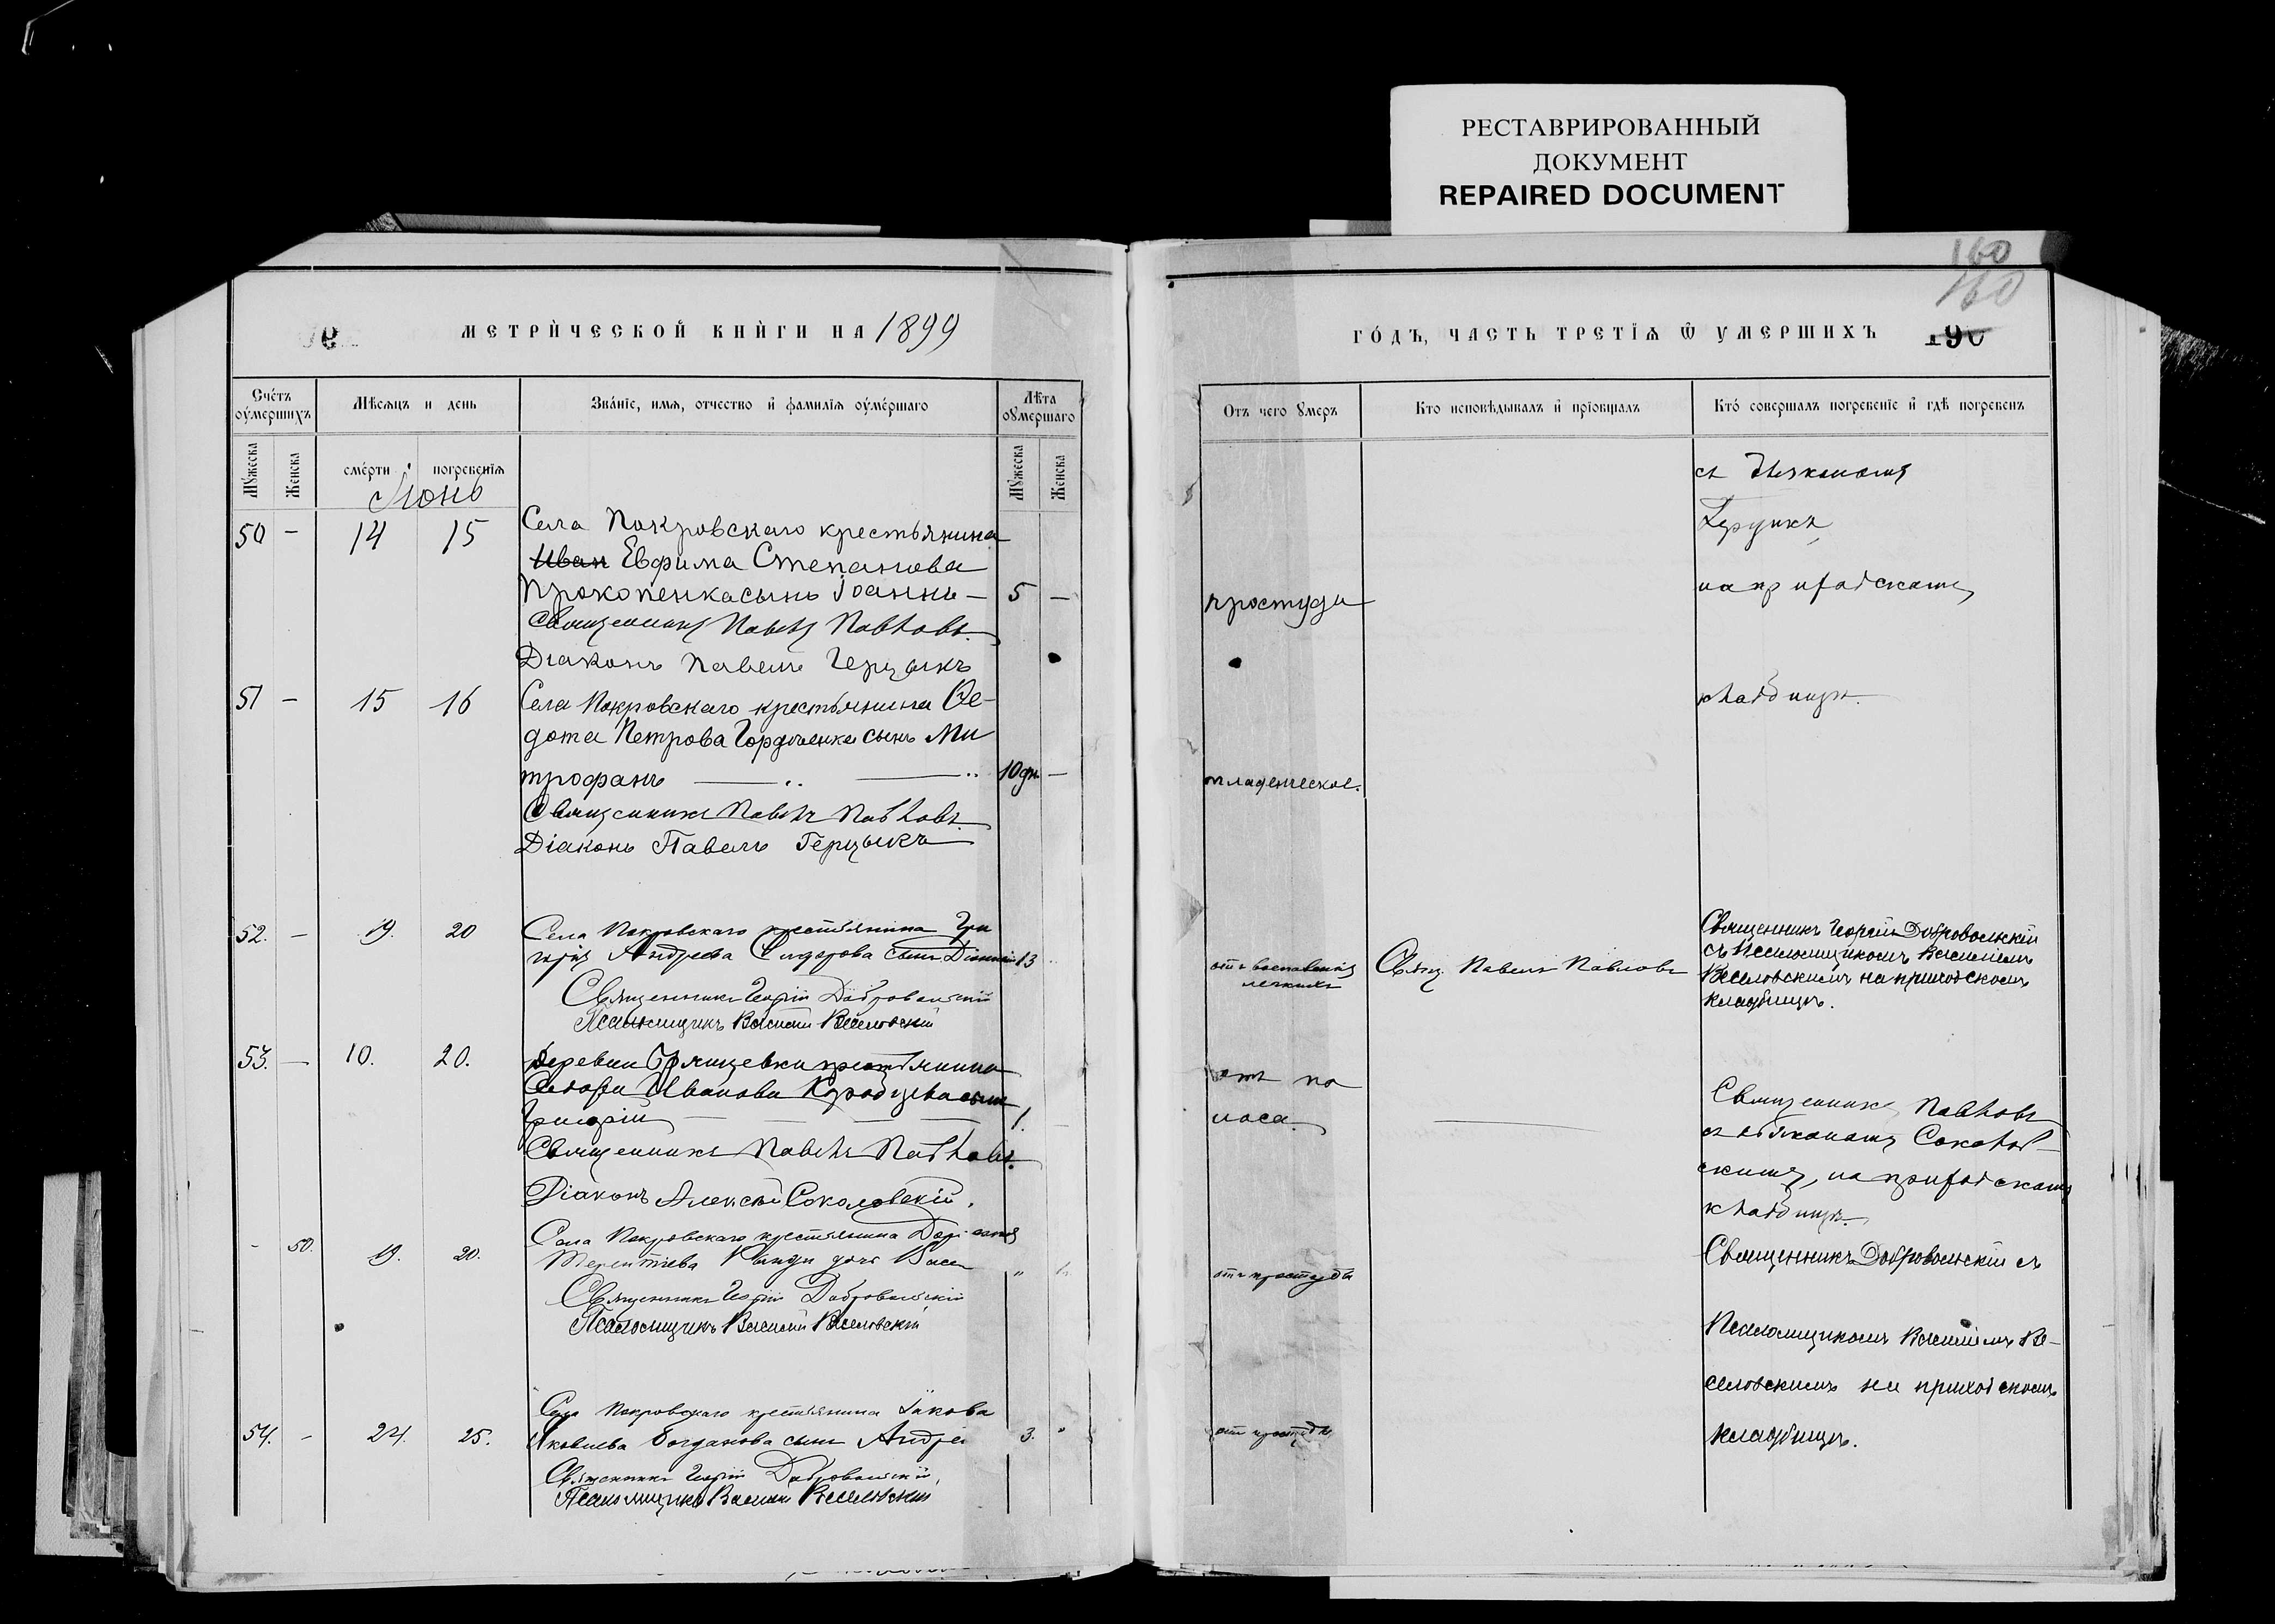 РЕСТАВРИРОВАННЫЙ
ДОКУМЕНТ
REPAIRED DOCUMENT
160
160
МЕТРИЧЕСКОЙ КНИГИ НА 1899
ГОДЪ, ЧАСТЬ ТРЕТІѦ Ѿ УМЕРШИХЪ 190
Счетъ оумершихъ
Мѣсяцъ и день
Званіе, имя, отчество и фамилія оумершаго
Лѣта оумершаго
Мужеска
Женска
смерти
погребенія
Мужеска
Женска
Отъ чего умеръ
Кто исповѣдывалъ и пріобщалъ
Кто совершалъ погребеніе и гдѣ погребенъ
Іюнь
50 – 14 15 Села Покровскаго крестьянина
Иван Евфима Степанова
Прокопенка сынъ Іоаннъ – 5 –
Священникъ Павелъ Павловъ.
Діаконъ Павелъ Герцыкъ
простуды
съ Діакономъ
Герцыкъ
на приходскомъ
кладбищѣ.
51 – 15 16 Села Покровскаго крестьянина Ѳе-
дота Петрова Гордіенка сынъ Ми
трофанъ 10 дн. –
Священникъ Павелъ Павловъ.
Діаконъ Павелъ Герцыкъ
младенческое.
52. – 19. 20 Села Покровскаго крестьянина Гри
горія Андреева Сидорова сынъ 13
Священникъ Георгій Добровольскій
Псаломщикъ Василій Веселовскій
отъ воспаленія
легкихъ
Свящ. Павелъ Павловъ
Священникъ Георгій Добровольскій
съ Псаломщикомъ Василіемъ
Веселовскимъ на приходскомъ
кладбищѣ.
53. – 10. 20. Деревни крестьянина
Ивановa сынъ
Григорій 1.
Священникъ Павелъ Павловъ.
Діаконъ Алексѣй Соколовскій.
отъ по
носа.
Священникъ Павловъ
съ діакономъ Соколов-
скимъ, на приходскомъ
кладбищѣ.
- 50. 19. 20. Села Покровскаго крестьянина
Терентіева дочь
Священникъ Георгій Добровольскій
Псаломщикъ Василій Веселовскій
отъ простуды
Священникъ Добровольскій съ
Псаломщикомъ Василіемъ Ве-
селовскимъ на приходскомъ
кладбищѣ.
54. – 24. 25. Села Покровскаго крестьянина Іакова
Яковлева Богданова сынъ Андрей 3. "
Священникъ Георгій Добровольскій,
Псаломщикъ Василій Веселовскій
отъ простуды